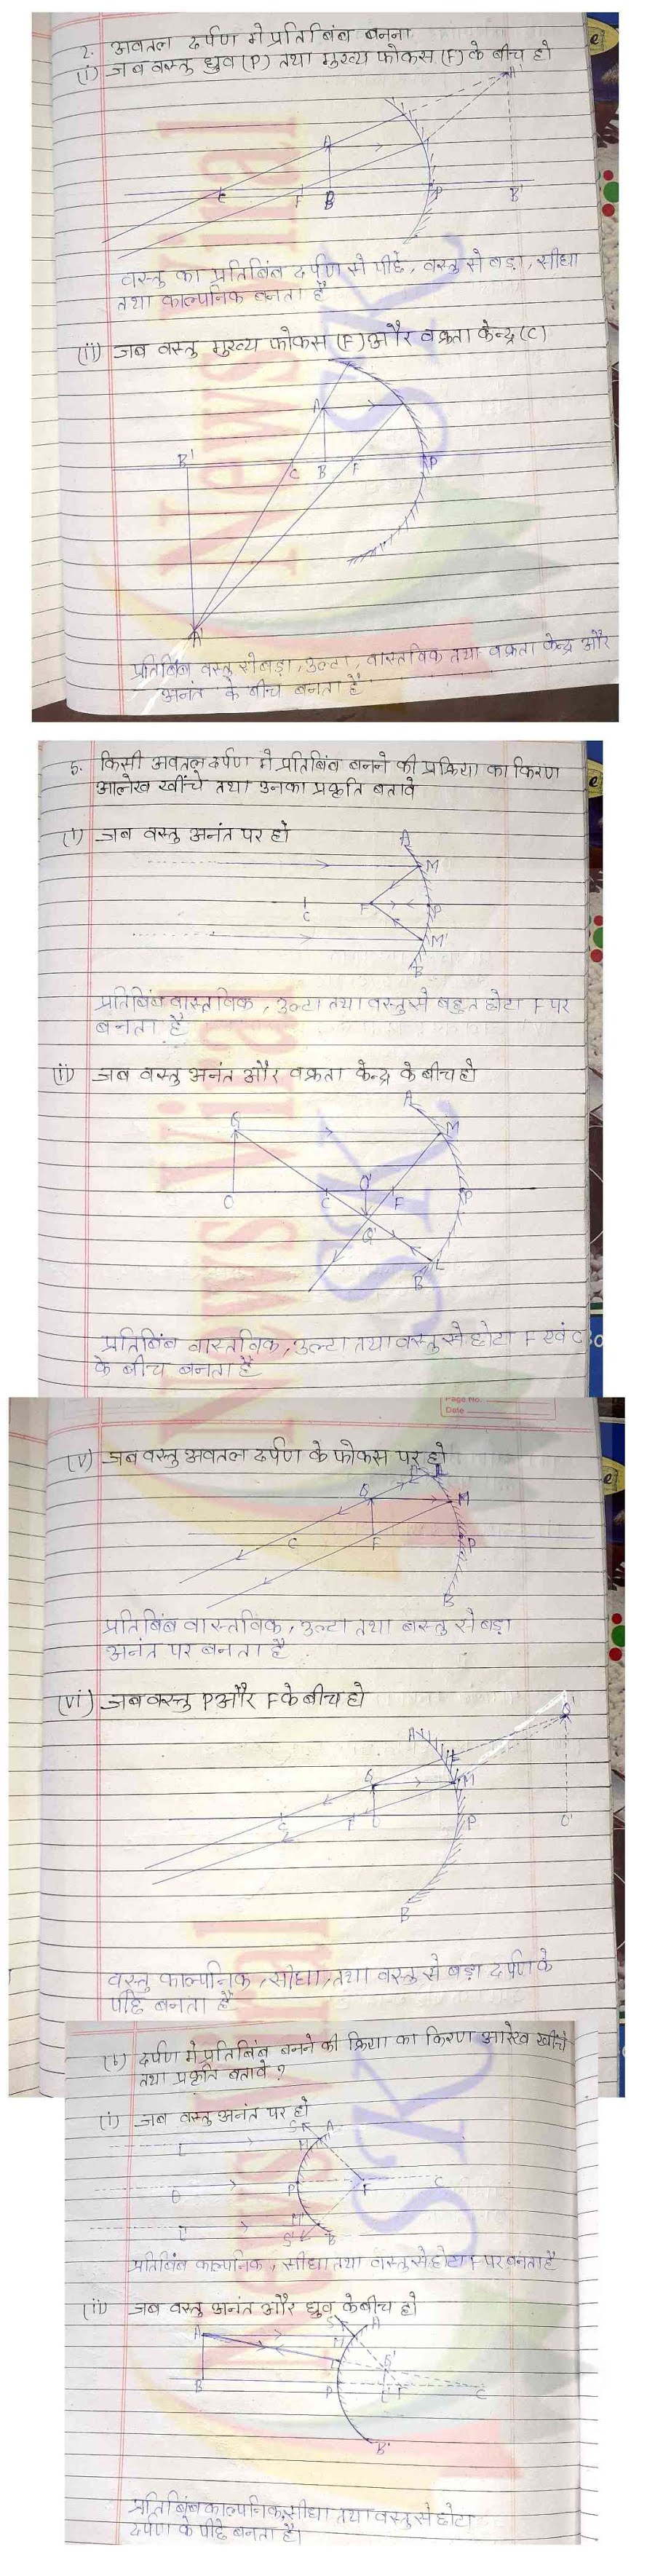 2. अवतल दर्पण में प्रतिबिंब बनना
(i) जब वस्तु ध्रुव (P) तथा मुख्य फोकस (F) के बीच हो
A'
A
C F B P B'
वस्तु का प्रतिबिंब दर्पण से पीछे, वस्तु से बड़ा, सीधा
तथा काल्पनिक बनता है
(ii) जब वस्तु मुख्य फोकस (F) और वक्रता केन्द्र (C)
A
B' C B F P
A'
प्रतिबिंब वस्तु से बड़ा, उल्टा, वास्तविक तथा वक्रता केन्द्र और
अनंत के बीच बनता है
5. किसी अवतल दर्पण में प्रतिबिंब बनने की प्रक्रिया का किरण
आलेख खींचे तथा उनका प्रकृति बतावे
(i) जब वस्तु अनंत पर हो
A
M
C F P
M'
B
प्रतिबिंब वास्तविक, उल्टा तथा वस्तु से बहुत छोटा F पर
बनता है
(ii) जब वस्तु अनंत और वक्रता केन्द्र के बीच हो
A
Q M
O C O' F P
Q'
B L
प्रतिबिंब वास्तविक, उल्टा तथा वस्तु से छोटा F एवं C
के बीच बनता है
Page No.
Date
(v) जब वस्तु अवतल दर्पण के फोकस पर हो
Q M
C F P
B
प्रतिबिंब वास्तविक, उल्टा तथा वस्तु से बड़ा
अनंत पर बनता है
(vi) जब वस्तु P और F के बीच हो
Q'
A
Q M
C F O P O'
B
वस्तु काल्पनिक, सीधा, तथा वस्तु से बड़ा दर्पण के
पीछे बनता है
(b) दर्पण में प्रतिबिंब बनने की क्रिया का किरण आरेख खींचे
तथा प्रकृति बतावे ?
(i) जब वस्तु अनंत पर हो
S A
M
P F C
M'
S' B
प्रतिबिंब काल्पनिक, सीधा तथा वस्तु से छोटा F पर बनता है
(ii) जब वस्तु अनंत और ध्रुव के बीच हो
S A
A M
B P F C
B'
प्रतिबिंब काल्पनिक, सीधा तथा वस्तु से छोटा
दर्पण के पीछे बनता है।